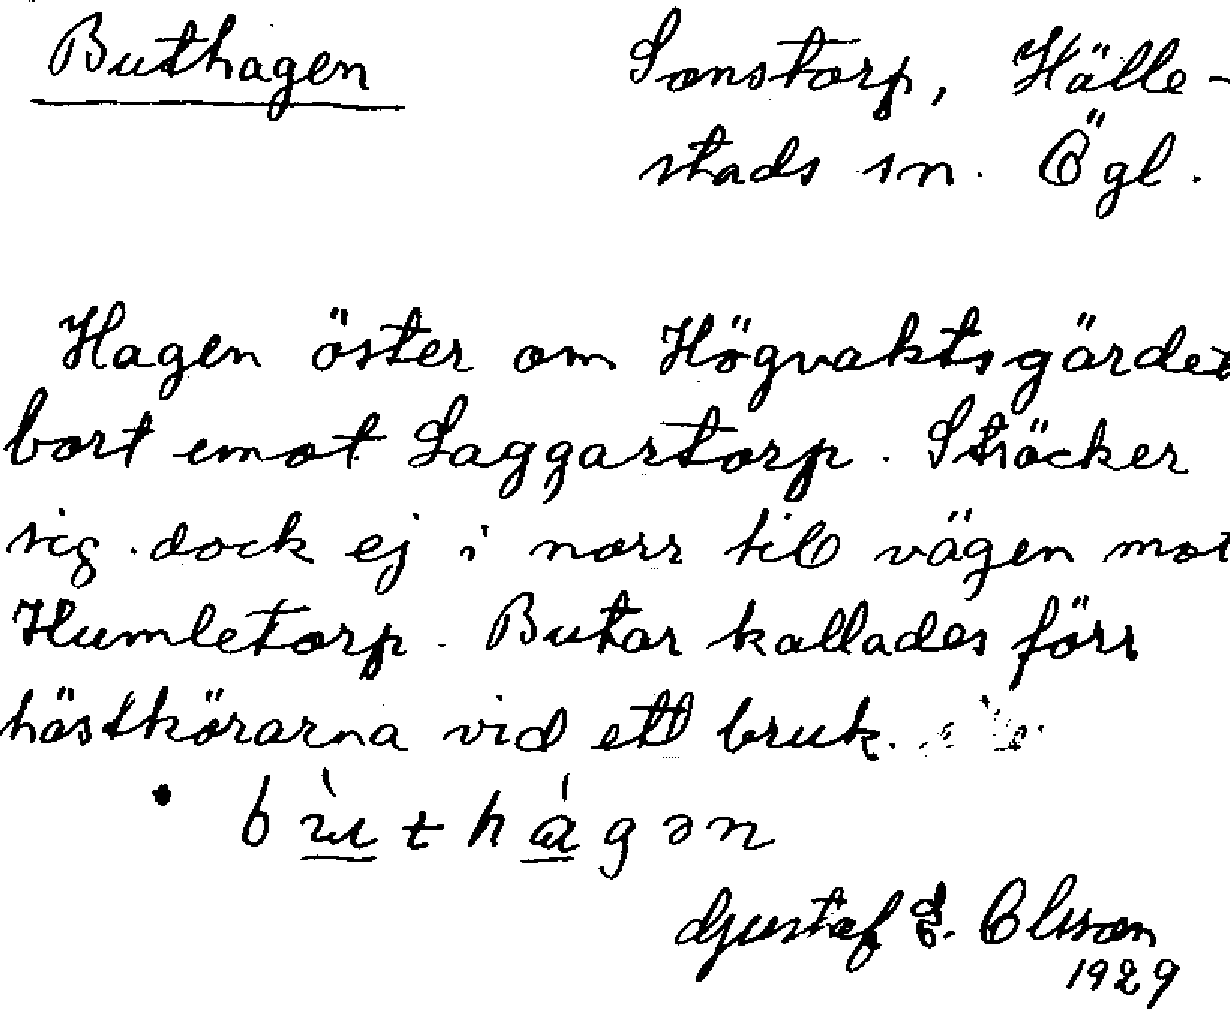 Buthagen Sonstorp, Hälle-
stads sn. Ögl.
Hagen öster om Högvaktsgärdet
bort emot Laggartorp. Sträcker
sig dock ej i norr till vägen mot
Humletorp. Butar kallades förr
hästkörarna vid ett bruk.
bù̱thá̱gən
Gustaf E. Olsson
1929